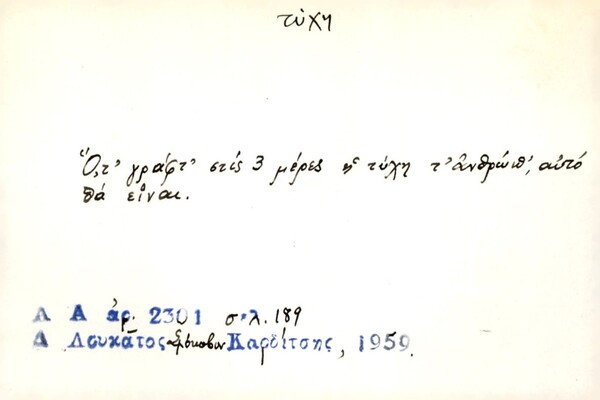 τύχη
Ὅ,τ' γράφτ' στίς 3 μέρες ἡ τύχη τ' ἀνθρώπ', αὐτό
θά εἶναι.
Λ Α ἀρ. 2301 σελ. 189
Δ Λουκᾶτος Καρδίτσης, 1959.